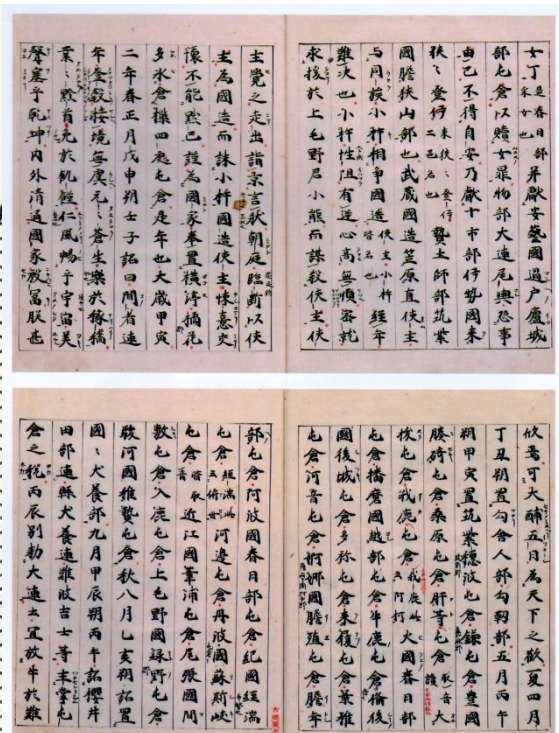 女丁是春日部采女也并獻安藝國過戸廬城
部屯倉以贖女罪物部大連尾輿恐事
由己不得自安乃獻十市部伊勢國来
狭〻登伊来狭〻登伊二邑名也贄土師部筑紫
國膽狭山部也武藏國造笠原直使主
与同族小杵相爭國造使主小杵皆名也經年
難決也小杵性阻有逆心高無順密就
求援於上毛野君小熊而謀殺使主使
主覺之走出詣京言状朝庭臨断以使
主為國造而誅小杵國造使主悚憙交
懐不能黙已謹為國家奉置横渟橘花
多氷倉樔四處屯倉是年也大歳甲寅
二年春正月戊申朔壬子詔曰間者連
年登穀接境無虞元〻蒼生樂於稼穡
業〻黔首免於飢饉仁風暢乎宇宙美
聲塞乎乾坤内外清通國家殷冨朕甚
欣焉可大酺五日為天下之歡夏四月
丁丑朔置勾舎人部勾靫部五月丙午
朔甲寅置筑紫穂波屯倉鎌屯倉豊國
腠碕屯倉桑原屯倉肝等屯倉取音讀大
抜屯倉我鹿屯倉我鹿此云阿柯火國春日部
屯倉播磨國越部屯倉牛鹿屯倉備後
國後城屯倉多祢屯倉来履屯倉葉稚
屯倉河音屯倉婀娜國膽殖屯倉膽年
部屯倉阿波國春日部屯倉紀國經湍
屯倉經湍此云俯世河邊屯倉丹波國蘇斯岐
屯倉皆取音近江國葦浦屯倉尾張國間
敷屯倉入鹿屯倉上毛野國緑野屯倉
駿河國稚贄屯倉秋八月乙亥朔詔置
國〻犬養部九月甲辰朔丙午詔櫻井
田部連縣犬養連難波吉士等主掌屯
倉之税丙辰別勅大連云宜放牛於難